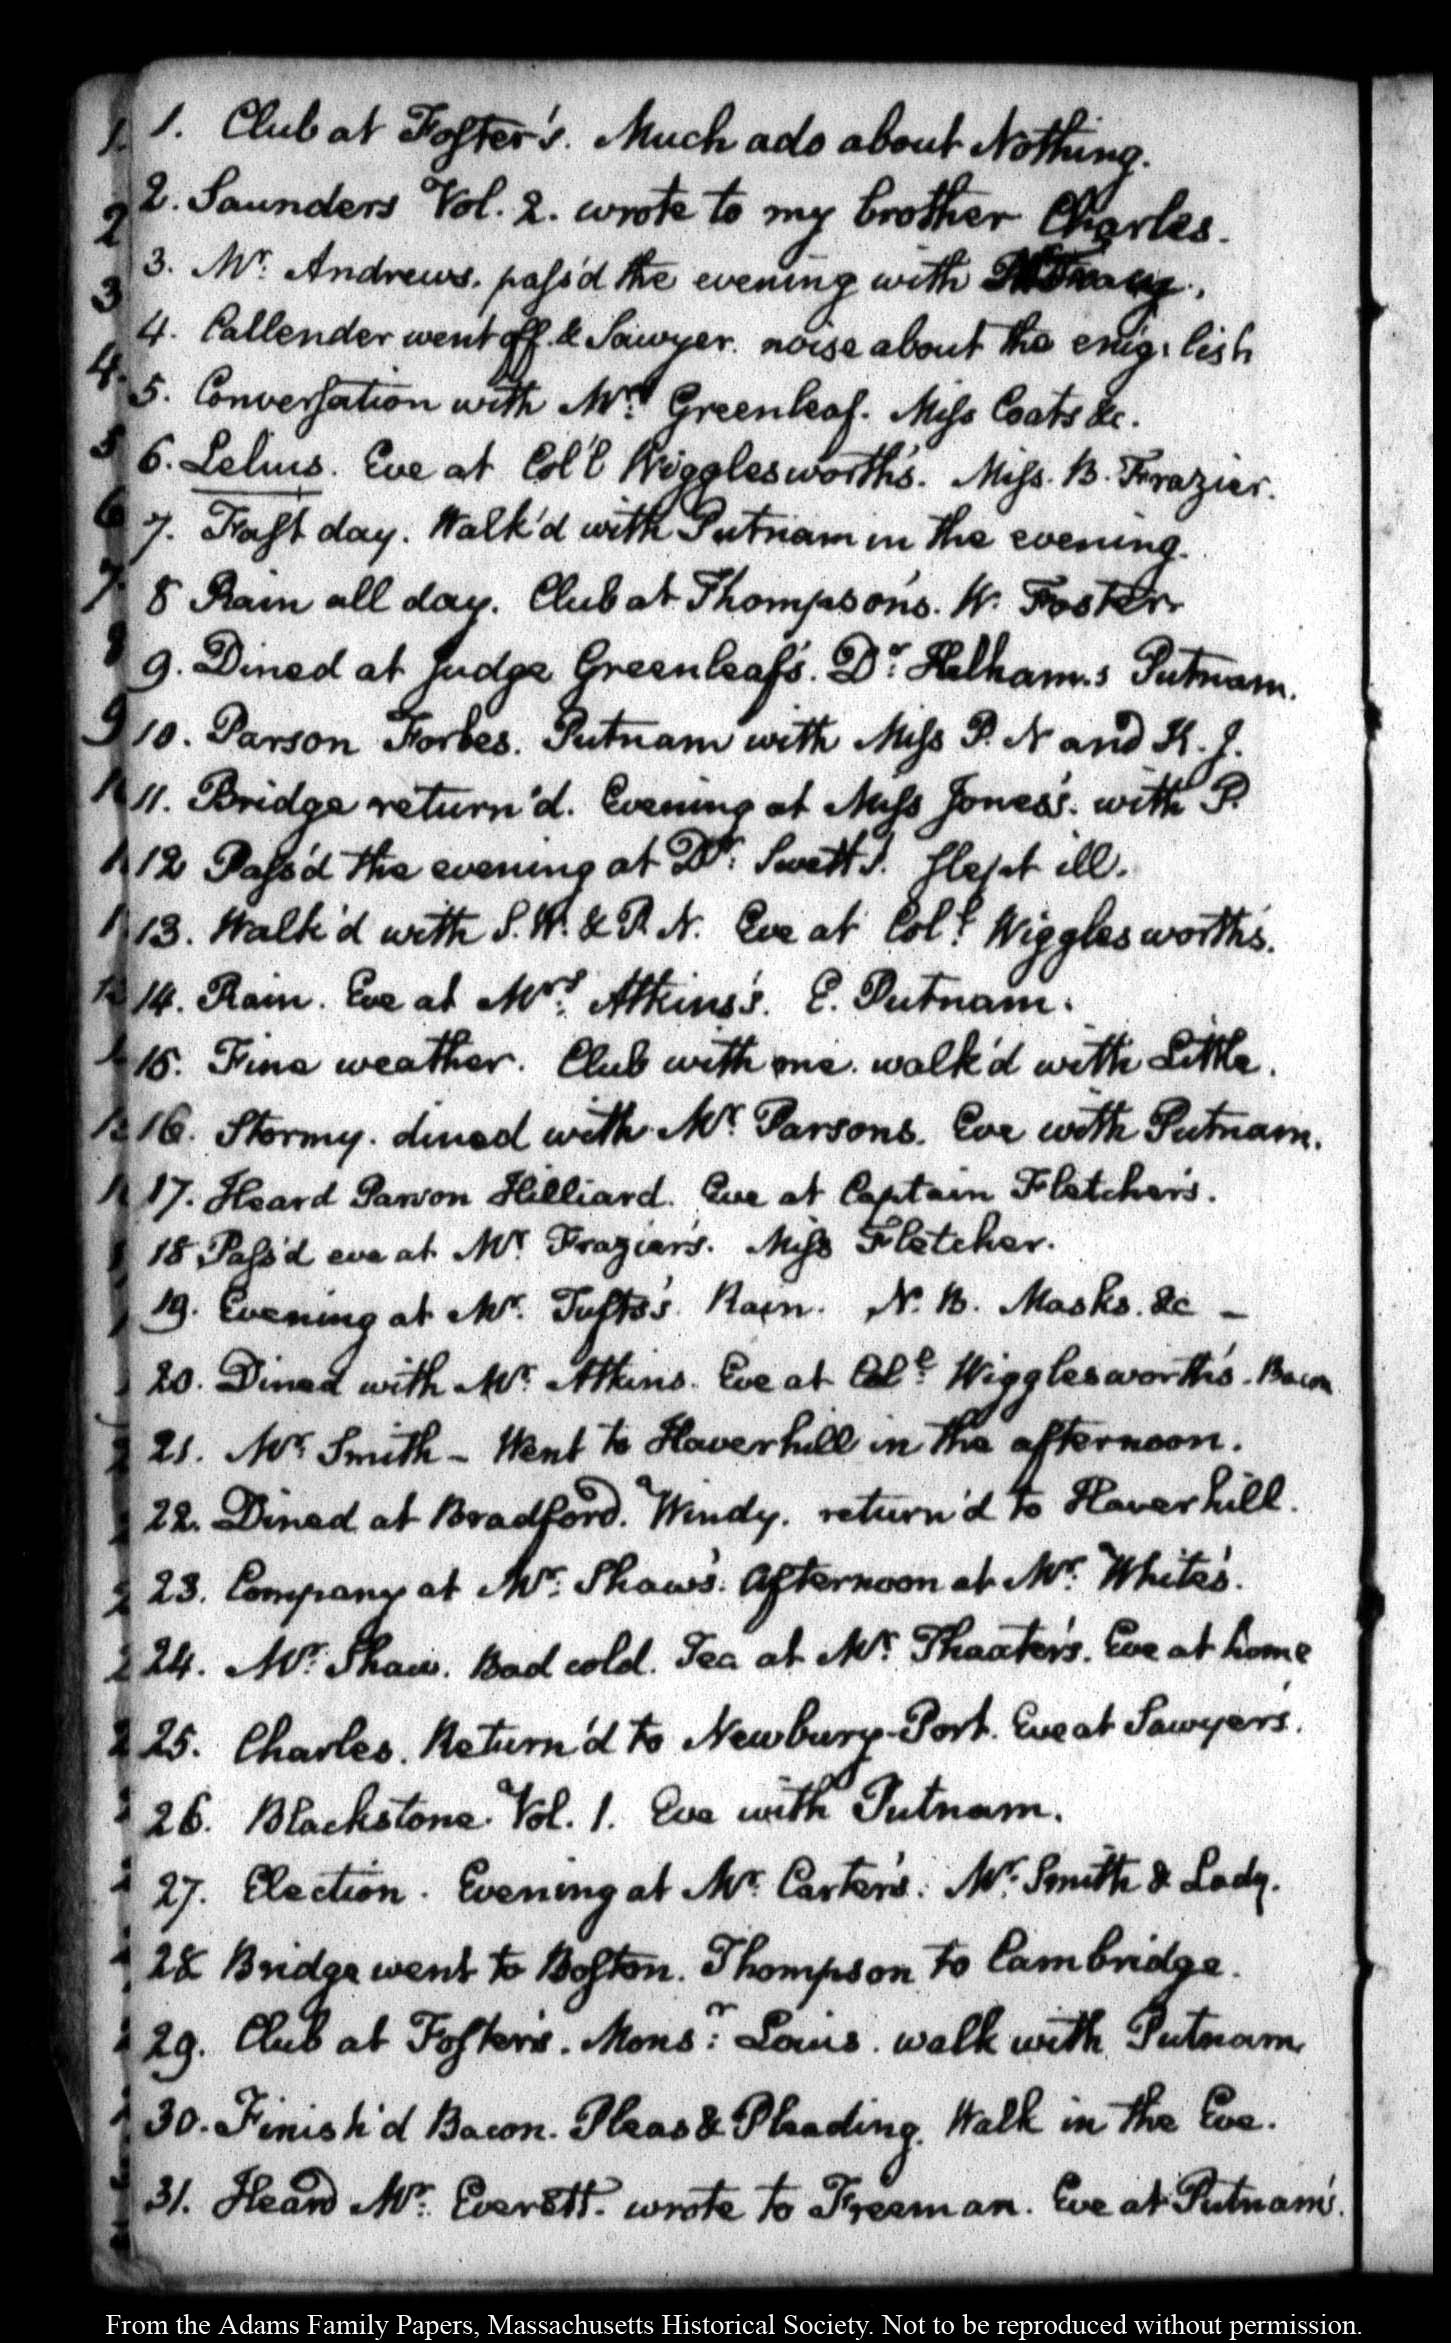 1. Club at Foster's. Much ado about Nothing.
2. Saunders Vol. 2. wrote to my brother Charles.
3. Mr. Andrews. pass'd the evening with
4. Callender went off. & Sawyer. noise about the
5. Conversation with Mrs. Greenleaf. Miss Coats &c.
6. Lelius. Eve at Col'l Wigglesworth's. Miss. B. Frazier.
7. Fast day. Walk'd with Putnam in the evening.
8 Rain all day. Club at Thompson's. W. Foster
9. Dined at Judge Greenleaf's. Dr. Putnam.
10. Parson Forbes. Putnam with Miss P. N and K. J.
11. Bridge return'd. Evening at Miss Jones's. with P.
12 Pass'd the evening at Dr. Swett's. Slept ill.
13. Walk'd with S. W. & P. N. Eve at Coll. Wigglesworth's.
14. Rain. Eve at Mrs. Atkins's. E. Putnam.
15. Fine weather. Club with me. walk'd with Little.
16. Stormy. dined with Mr. Parsons. Eve with Putnam.
17. Heard Parson Hilliard. Eve at Captain Fletcher's.
18 Pass'd eve at Mr. Frazier's. Miss Fletcher.
19. Evening at Mr. Tufts's. Rain. N. B. Masks. &c –
20. Dined with Mr. Atkins. Eve at Coll. Wigglesworth's. Bacon
21. Mr. Smith – Went to Haverhill in the afternoon.
22. Dined at Bradford. Windy. return'd to Haverhill.
23. Company at Mr. Shaw's. Afternoon at Mr. White's.
24. Mr. Shaw. Bad cold. Tea at Mr. Thaxter's. Eve at home
25. Charles. Return'd to Newbury-Port. Eve at Sawyer's.
26. Blackstone. Vol. 1. Eve with Putnam.
27. Election. Evening at Mr. Carter's. Mr. Smith & Lady.
28 Bridge went to Boston. Thompson to Cambridge.
29. Club at Foster's. Monsr. Louis. walk with Putnam
30. Finish'd Bacon. Pleas & Pleading. Walk in the Eve.
31. Heard Mr. Everett. wrote to Freeman. Eve at Putnam's.
From the Adams Family Papers, Massachusetts Historical Society. Not to be reproduced without permission.